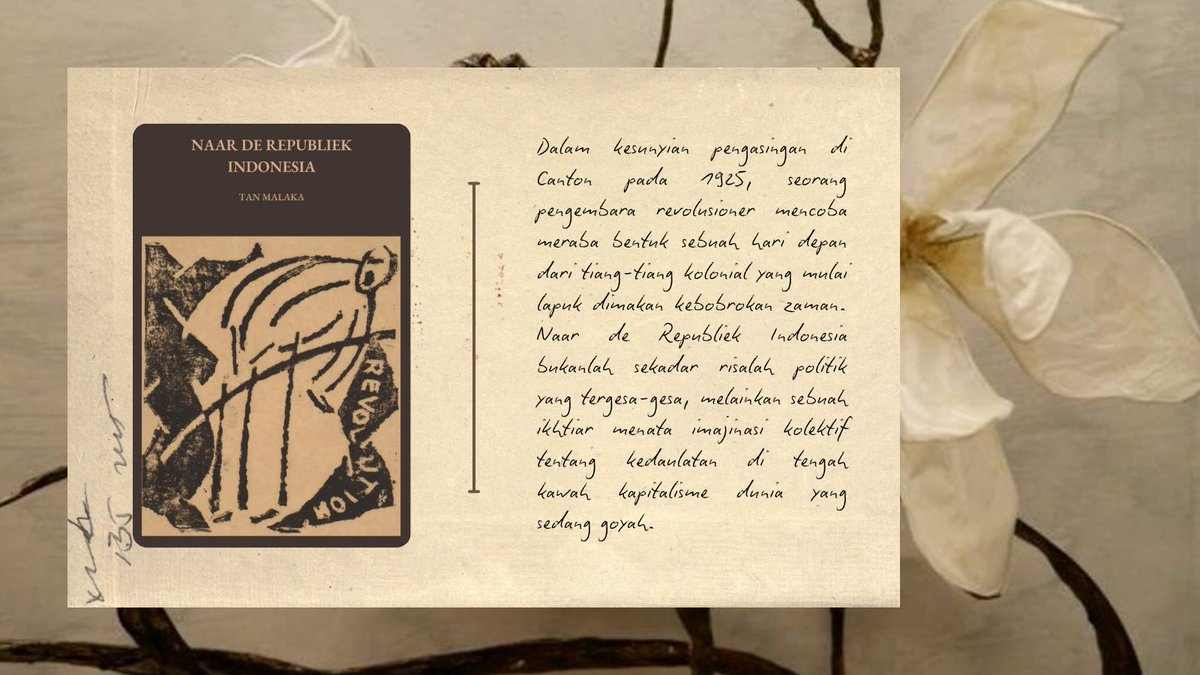 NAAR DE REPUBLIEK
INDONESIA
TAN MALAKA
REVOLUTION
Dalam kesunyian pengasingan di
Canton pada 1925, seorang
pengembara revolusioner mencoba
meraba bentuk sebuah hari depan
dari tiang-tiang kolonial yang mulai
lapuk dimakan kebobrokan zaman.
Naar de Republiek Indonesia
bukanlah sekadar risalah politik
yang tergesa-gesa, melainkan sebuah
ikhtiar menata imajinasi kolektif
tentang kedaulatan di tengah
kawah kapitalisme dunia yang
sedang goyah.